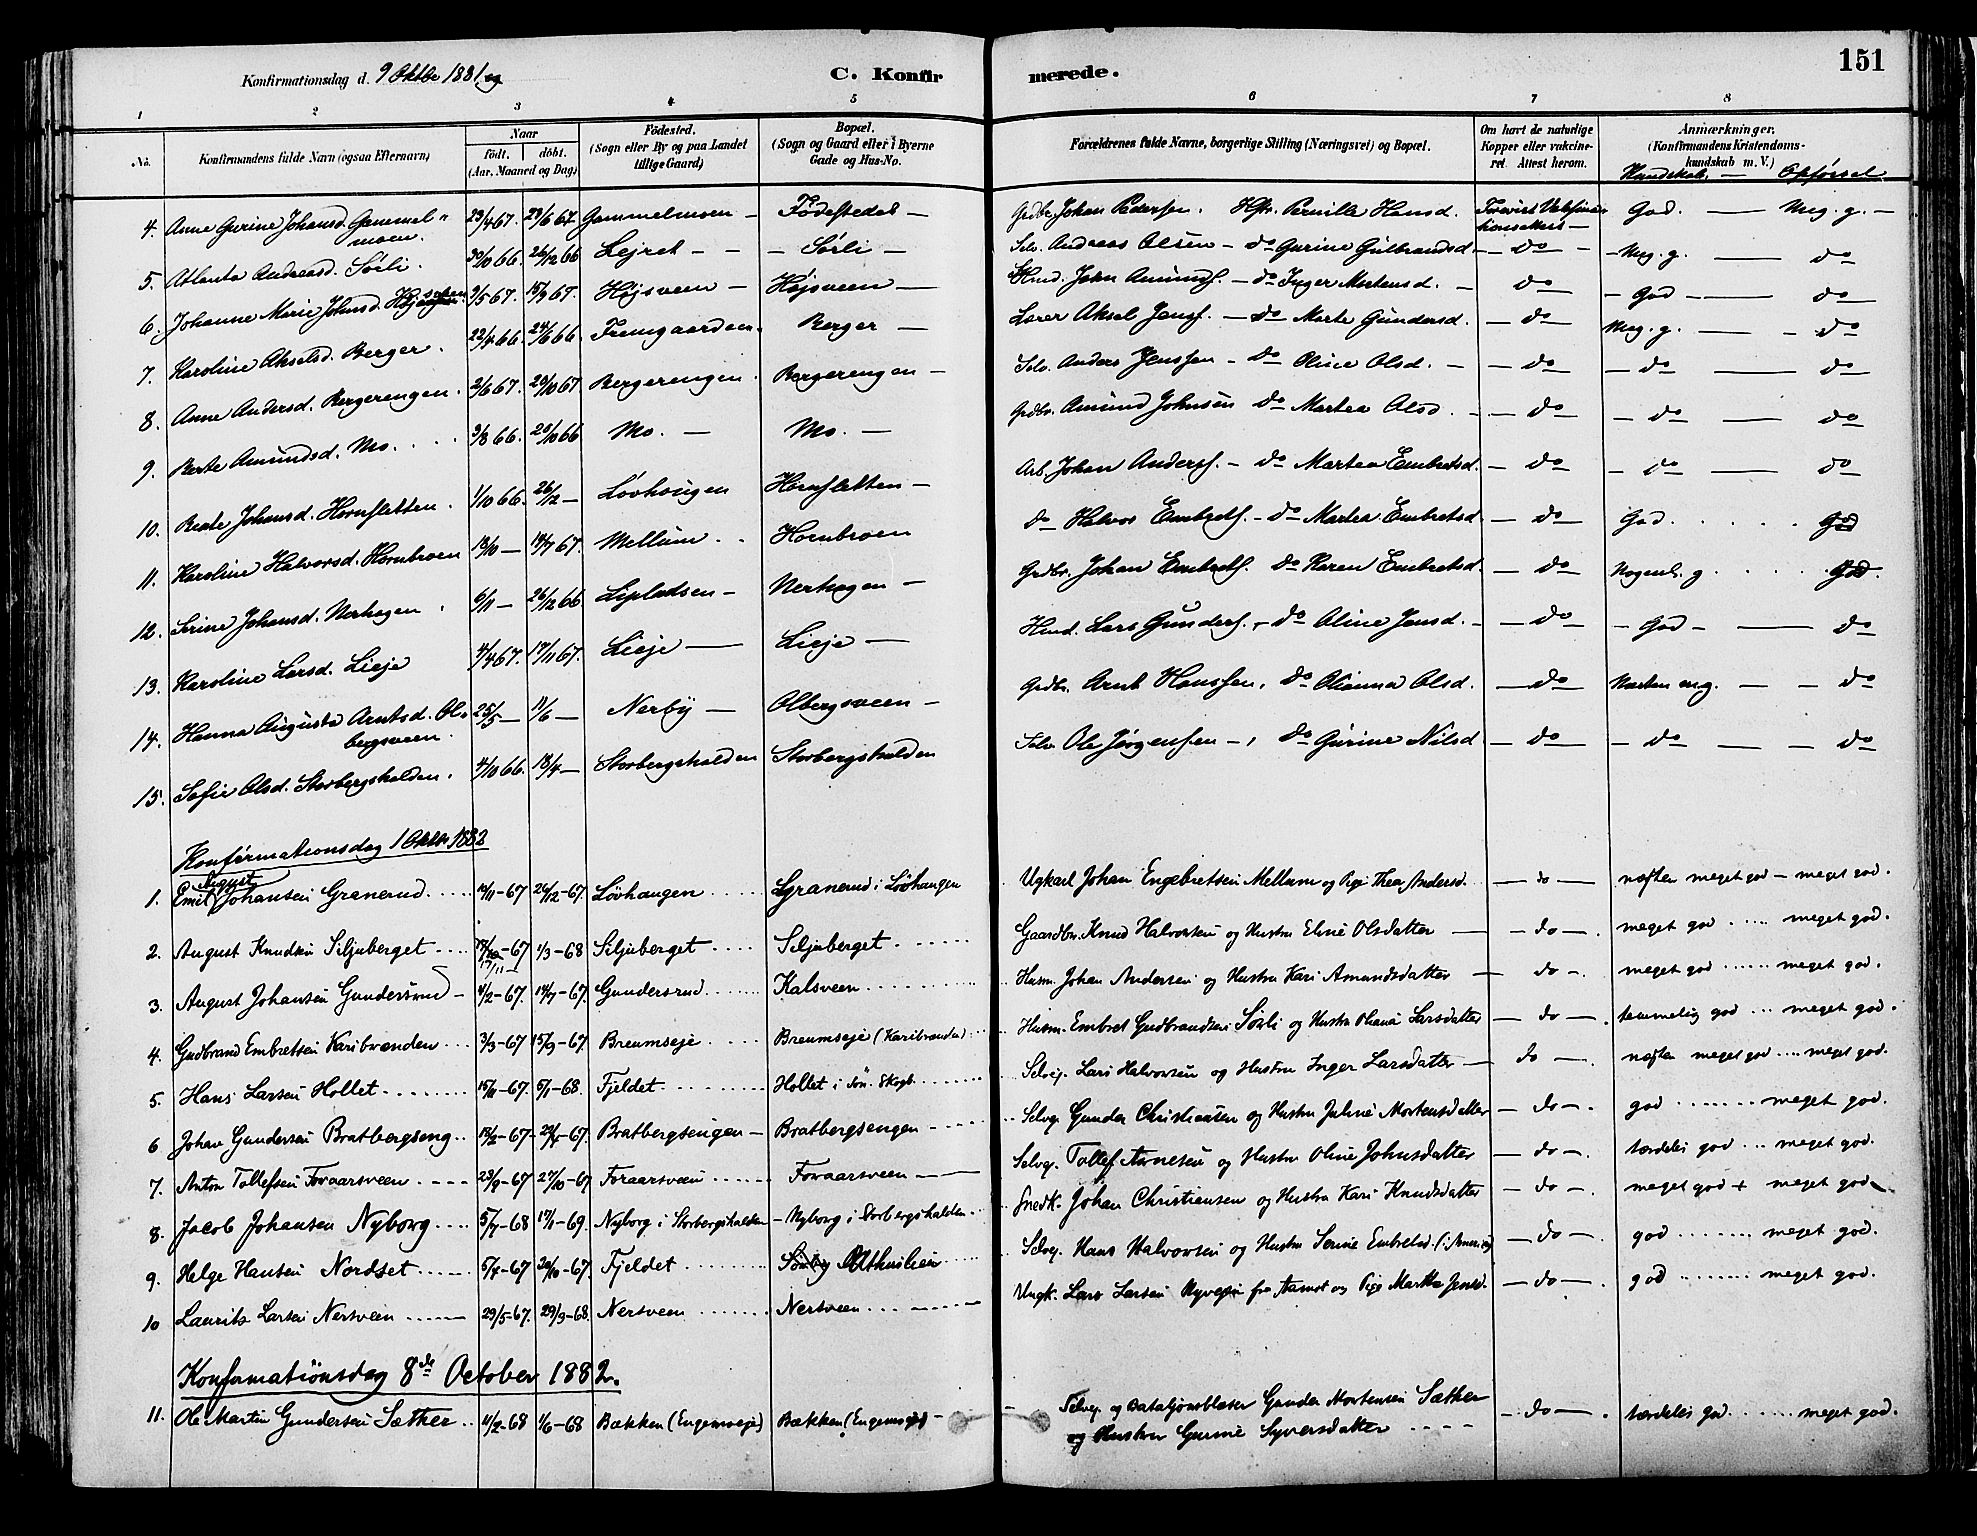 151
Konfirmationsdag d. 9 Oktbr 1881 og C. Konfirmerede.
1 2 3 4 5 6 7 8
No. Konfirmandens fulde Navn (ogsaa Efternavn) Naar født. døbt. (Aar, Maaned og Dag) Fødested. (Sogn eller By og paa Landet tillige Gaard) Bopæl. (Sogn og Gaard eller i Byerne Gade og Hus-No. Forældrenes fulde Navne, borgerlige Stilling (Næringsvei) og Bopæl. Om havt de naturlige Kopper eller vakcineret. Attest herom. Anmærkninger. (Konfirmandens Kristendomskundskab m. V.)
Kundskab. — Opførsel
4. Anne Gurine Johansd. Gammelmoen. 23/4 67. 23/6 67. Gammelmoen — Fødestedet — Grdbr. Johan Pedersen. Hstr. Pernille Hansd. God. — Meg. g. —
5. Atlanta Andreasd. Sørli. 30/10 66. 26/12 66 Lejret — — — Sørli — Selv. Andreas Olsen — do Gurine Gulbrandsd. — do — — Meg. g. — do
6. Johanne Marie Johnsd. Højsveen 9/5 67. 15/9 67. Højsveen — Højsveen — Husmd. John Amunds. — do Inger Mortensd. — do — God — — do
7. Karoline Akselsd. Berger. 22/4 66. 24/6 66. Fremgaarden. Berger — Lærer Aksel Jens. — do Marte Gundersd. — do Meg. g. — — do
8. Anne Andersd. Bergerengen. 2/6 67. 20/10 67. Bergerengen. Bergerengen — Selv. Anders Jenssen — do Oline Olsd. — — do — do — do
9. Berte Amundsd. Mo. 9/8 66. 28/10 66 Mo. — Mo. — Grdbr. Amund Johnsen do Martea Olsd. — do — — do — do
10. Beate Johansd. Hornsletten. 1/10 66. 26/12 — Løvhougen Hornsletten — Arb. Johan Anders. — do Martea Embretsd. — do — — do — do
11. Karoline Halvorsd. Hornbroen 13/10 — 14/7 67. Mellum Hornbroen do Halvor Embrets. — do Martea Embretsd — do — God. God
12. Serine Johansd. Nerhagen. 6/11 — 26/12 66. Lipladsen — Nerhagen — Grdbr. Johan Embrets. do Karen Embretsd. — do — Nogenl. g. God.
13. Karoline Larsd. Lieje 4/4 67. 17/11 67. Lieje — Lieje — Husmd. Lars Gunders. — do Oline Jensd. — do — — God — — do
14. Hanna Augusta Arntsd. Olbergsveen. 25/5 — 11/6 — Nerby — Olbergsveen — Grdbr. Arnt Hanssen, do Olianna Olsd. — do — Næsten m.g. — — do
15. Sofie Olsd. Storbergshalden. 4/10 66. 18/4 — Storbergshalden Storbergshalden Selv. Ole Jørgensen —, do Gurine Nilsd — do — — do — — do
Konfirmationsdag 1 Oktbr. 1882
1. Emil August Johansen Granerud. 14/11-67 26/12-67. Lövhaugen Granerud i Lövhaugen Ugkarl Johan Engebretsen Mellum og Pige Thea Andersd. — do — næsten meget god — meget god.
2. August Knudsen Siljuberget 1/3-68 Siljuberget Siljuberget Gaardbr. Knud Halvorsen og Hustru Eline Olsdatter — do —. meget god meget god.
3. August Johansen Gundersrud — 4/2-67. 14/7-67. Gundersrud Kalsveen Husm. Johan Andersen og Hustru Kari Amundsdatter — do —. meget god meget god.
4. Gudbrand Embretsen Karibrænden 3/3-67 15/9-67. Breumseje Breumseje (Karibrænden) Husm. Embret Gudbrandsen Sörli og Hustru Oliana Larsdatter — do —. temmelig god meget god.
5. Hans Larsen Hollet 15/11-67. 5/1-68. Fjeldet Hollet i Sön. Skogb. Selvej. Lars Halvorsen og Hustru Inger Larsdatter — do —. næsten meget god meget god.
6 Johan Gundersen Bratbergseng 13/2-67. Bratbergsengen — Bratbergsengen Selvej. Gunder Christiansen og Hustru Juline Mortensdatter — do —. god meget god.
7. Anton Tollefsen Foraarsveen 23/9-67 27/10-67 Foraarsveen Foraarsveen Selvej. Tollef Arnesen og Hustru Oline Johnsdatter — do —. særdeles god meget god.
8. Jacob Johansen Nyborg 5/7-68 17/1-69. Nyborg i Storbergshalden — Nyborg i Storbergshalden. Snedk. Johan Christiansen og Hustru Kari Knudsdatter — do —. meget god + meget god
9. Helge Hansen Nordset 5/7-67 20/10-67. Fjeldet Selvej. Hans Halvorsen og Hustru Serine Embretsd. (i Amerika) — do —. god meget god.
10 Laurits Larsen Nersveen 29/5-67. 29/9-68. Nersveen Nersveen Ungk. Lars Larsen fra Aamot og Pige Marthe Jensd. — do —. god meget god.
Konfirmationsdag 8de October 1882.
11. Ole Martin Gundersen Sæther 11/2-68 1/6-68 Bækken (Engemoeje) Bækken (Engemoeje) — Selvej. og Bataljonsblæser Gunder Mortensen Sæther — do —. særdeles god meget god.
og Hustru Gurine Syversdatter